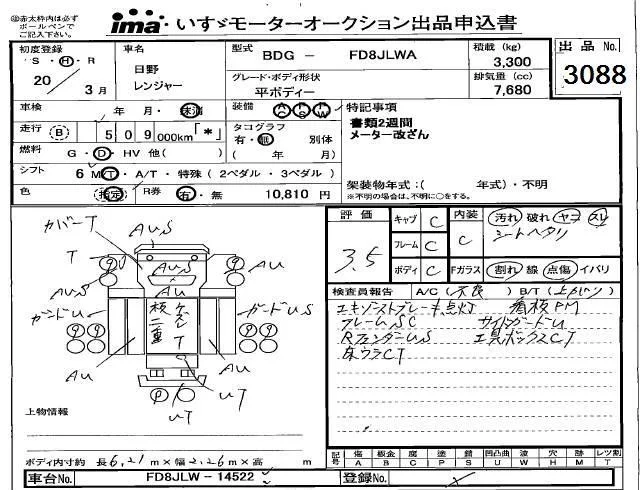 ◎赤太枠内は必ず
ボールペンで
ご記入下さい。
ima いすゞモーターオークション出品申込書
初度登録
S・H・R
20 3月
車名
日野
レンジャー
型式 BDG － FD8JLWA
グレード・ボディ形状
平ボディー
積載 (kg)
3,300
排気量 (cc)
7,680
出品No.
3088
車検 年 月・抹消
装備 AC PS PW
走行 (B) 509000km「*」
タコグラフ
有・無 別体
( 年 月)
燃料
G・D・HV 他( )
シフト 6 MT・A/T・特殊(2ペダル・3ペダル)
色 指定 R券 有・無 10,810円
特記事項
書類2週間
メーター改ざん
架装物年式：( 年式)・不明
※不明の場合は、不明に○をする。
評価
3.5
キャブ C
フレーム C
ボディ C
内装
C
汚れ 破れ ヤコ スレ
シートヘタリ
Fガラス 割れ 線 点傷 イバリ
検査員報告 A/C(不良) B/T(上がり)
エキゾーストブレーキ点灯 看板PM
フレームSC サイドガードU
RフェンダーUS 工具ボックスCT
床ウラCT
カバーT
AUS
T
AU
AUS
AU
AUS
ガードU
ガードUS
板二重
T
AU
AU
UT
UT
上物情報
ボディ内寸約 長6.21m×幅2.26m×高 m
記号 傷 A 板金 B 腐 C 塗 P 錆 S 凹凸曲 U 波 W 穴 H 跡 M レツ割 T
車台No. FD8JLW－14522
登録No.